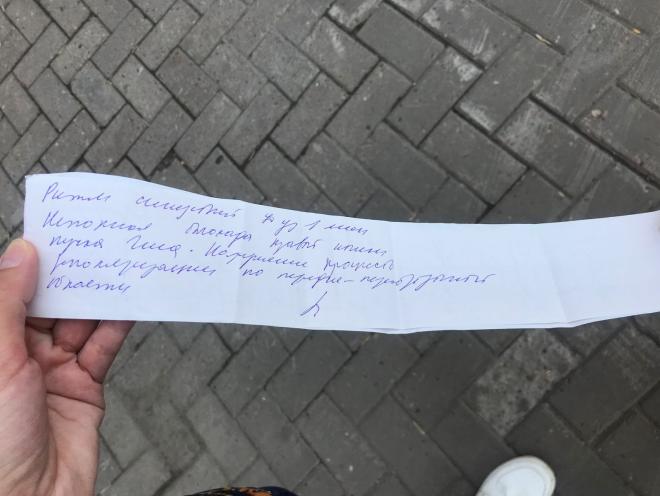 Ритм синусовый
Неполная блокада правой ножки
пучка Гиса. Нарушение процессов
реполяризации по передне-перегородочной
области